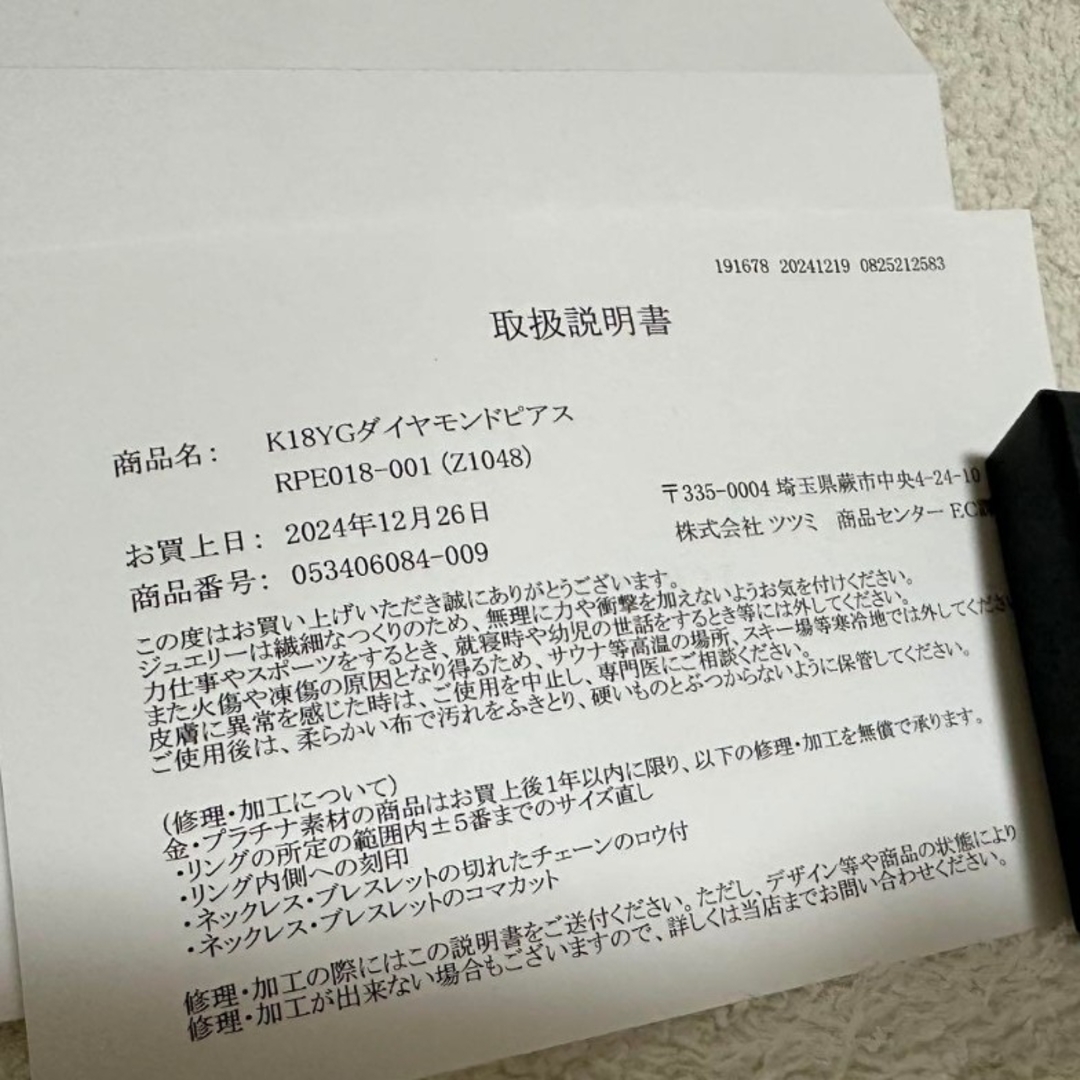 191678 20241219 0825212583
取扱説明書
商品名： K18YGダイヤモンドピアス
RPE018-001 (Z1048)
お買上日： 2024年12月26日
商品番号： 053406084-009
〒335-0004 埼玉県蕨市中央4-24-10
株式会社 ツツミ 商品センター E.C
この度はお買い上げいただき誠にありがとうございます。
ジュエリーは繊細なつくりのため、無理に力や衝撃を加えないようお気を付けください。
力仕事やスポーツをするとき、就寝時や幼児の世話をするとき等には外してください。
また火傷や凍傷の原因となり得るため、サウナ等高温の場所、スキー場等寒冷地では外してくださ
皮膚に異常を感じた時は、ご使用を中止し、専門医にご相談ください。
ご使用後は、柔らかい布で汚れをふきとり、硬いものとぶつからないように保管してください。
(修理・加工について)
金・プラチナ素材の商品はお買上後1年以内に限り、以下の修理・加工を無償で承ります。
・リングの所定の範囲内±5番までのサイズ直し
・リング内側への刻印
・ネックレス・ブレスレットの切れたチェーンのロウ付
・ネックレス・ブレスレットのコマカット
修理・加工の際にはこの説明書をご送付ください。ただし、デザイン等や商品の状態により
修理・加工が出来ない場合もございますので、詳しくは当店までお問い合わせください。